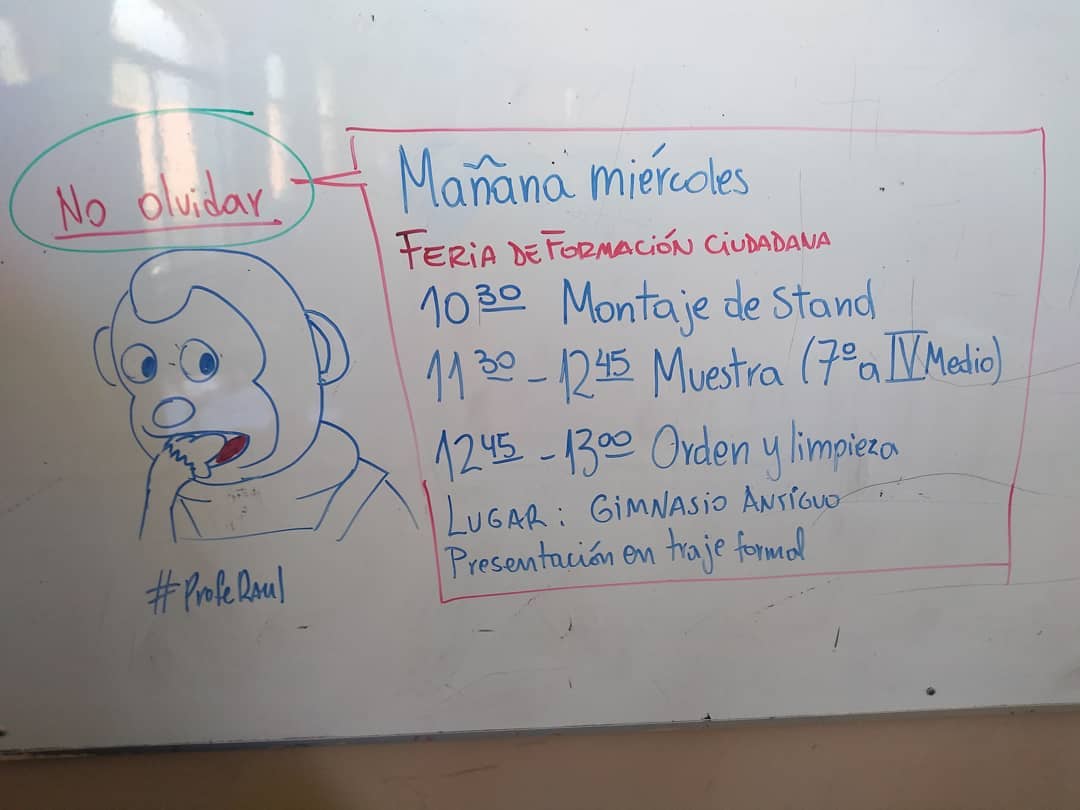 No olvidar
Mañana miércoles
FERIA DE FORMACIÓN CIUDADANA
10 30 Montaje de Stand
11 30 - 12 45 Muestra (7º a IV Medio)
12 45 - 13 00 Orden y limpieza
LUGAR: GIMNASIO ANTIGUO
Presentación en traje formal
#ProfeRaul